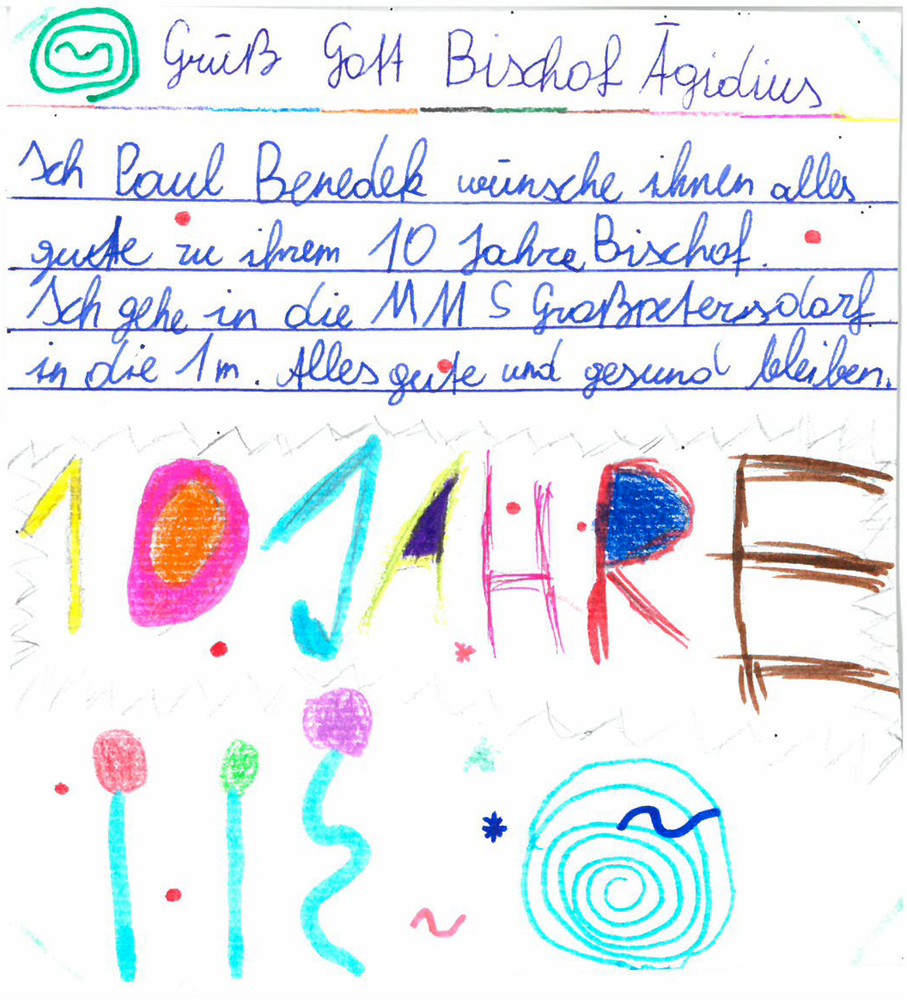 Grüß Gott Bischof Āgidius
Ich Paul Benedek wünsche ihnen alles
gute zu ihrem 10 Jahre Bischof.
Ich gehe in die MMS Großpetersdorf
in die 1m. Alles gute und gesund bleiben.
10 JAHRE